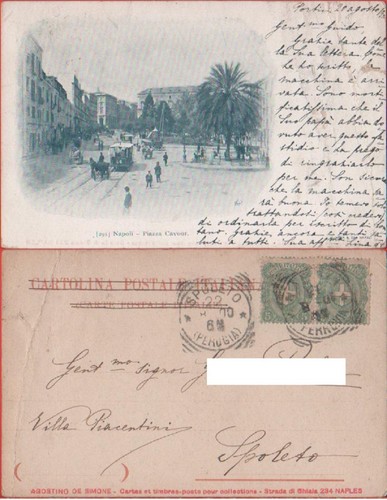 Portici 20 agosto
Gent.mo Guido,
Grazie tante del
la Sua lettera. Come
le ho scritto, la
macchina è arri
vata. Sono morti
ficatissima che il
Suo papà abbia do
vuto aver questo fa
stidio e la prego
di ringraziarlo
per me. Son sicura
che la macchina sa
rà buona. Io temevo
trattandosi, così
di ordinarla per iscritto
tano. Grazie, ancora e tanti
luti a tutti. Sua aff.
[191] Napoli - Piazza Cavour.
CARTOLINA POSTALE ITALIANA
CARTE POSTALE
SPOLETO
22
(PERUGIA)
Gent.mo Signor
Villa Piacentini
Spoleto
AGOSTINO DE SIMONE - Cartes et timbres-poste pour collections - Strada di Chiaia 234 NAPLES